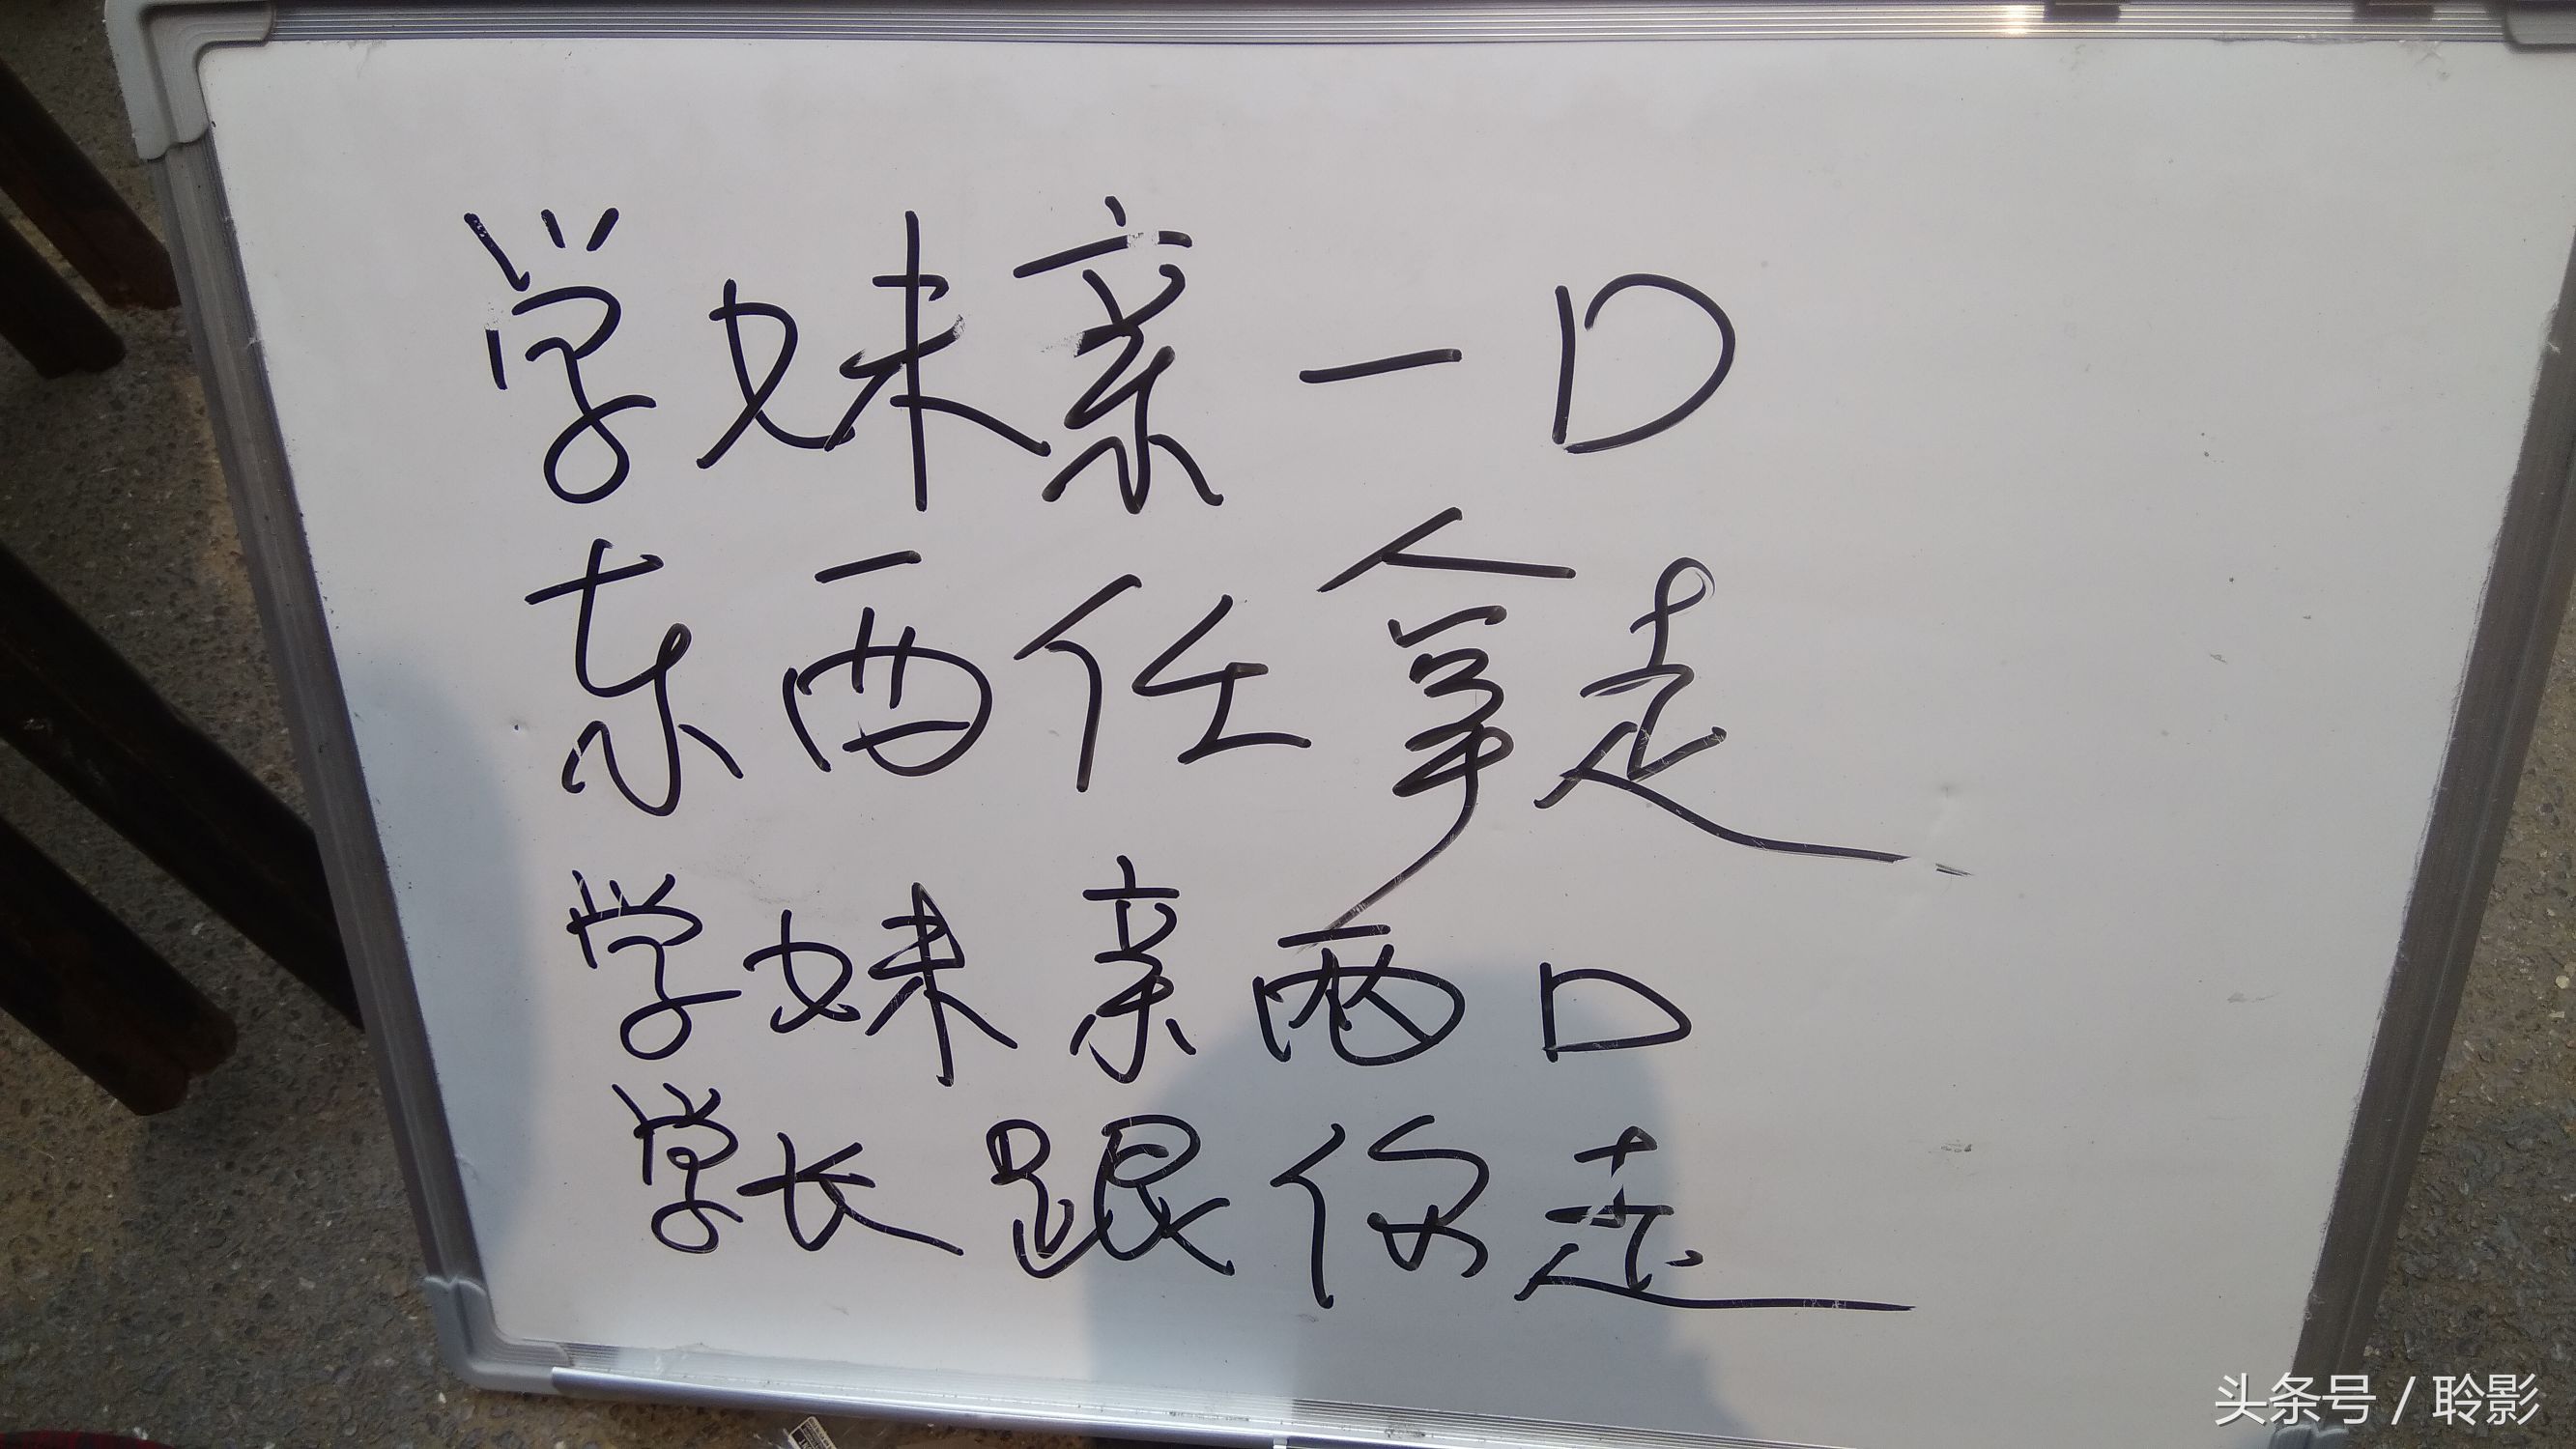 学妹亲一D
东西任拿走
学妹亲两D
学长跟你走
头条号 / 聆影